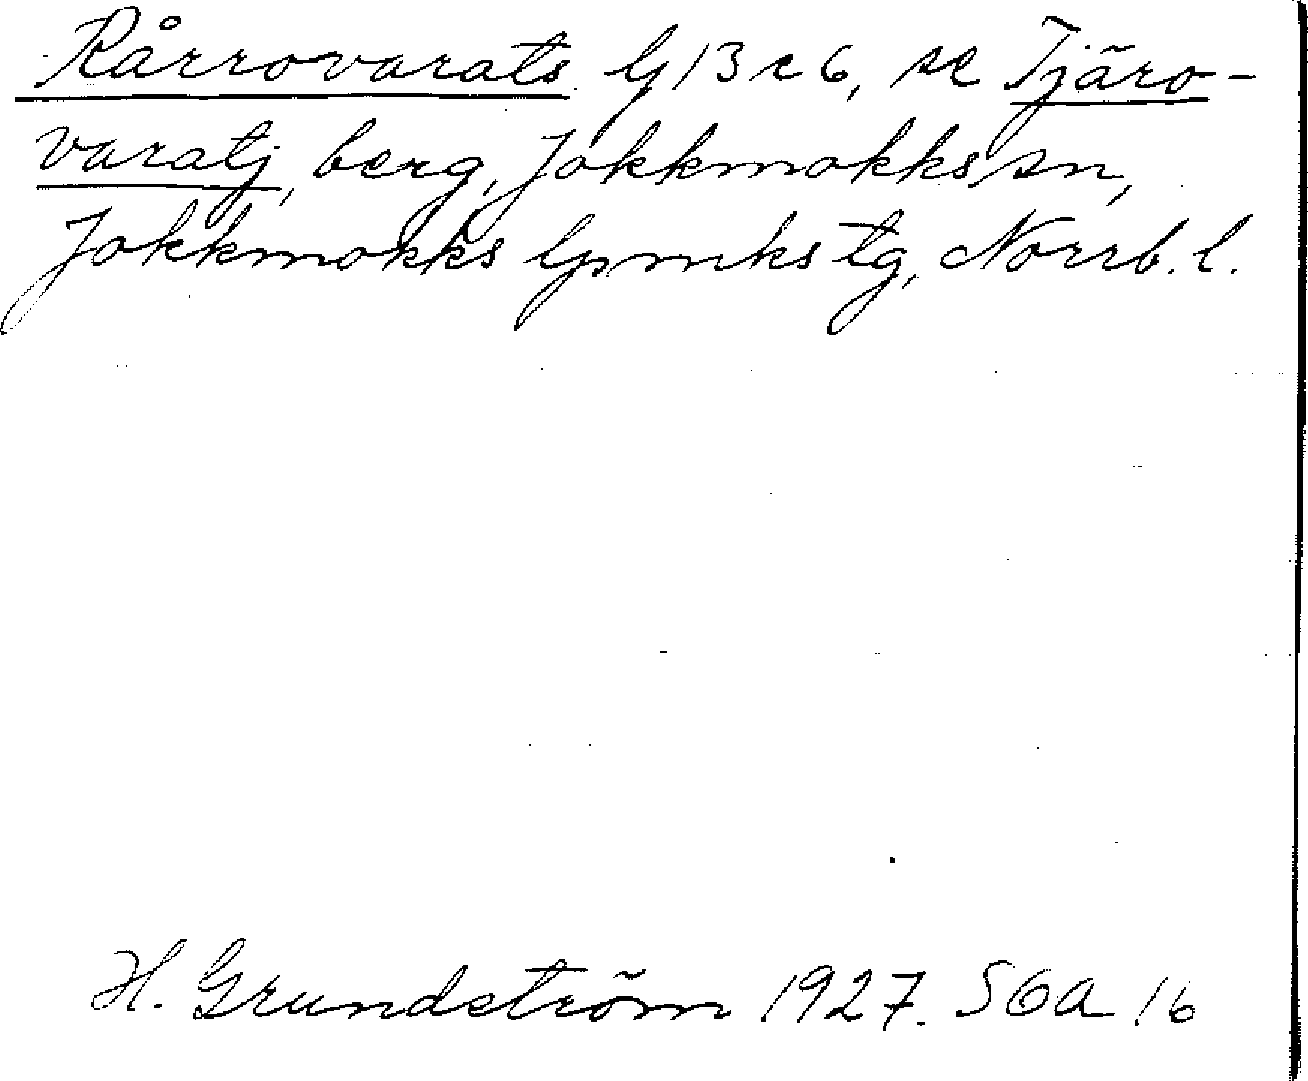 Rårrovarats G 13 c 6, se Tjäro-
varatj, berg, Jokkmokks sn,
Jokkmokks lpmks tg, Norrb. l.
H. Grundström 1927. SGA 16